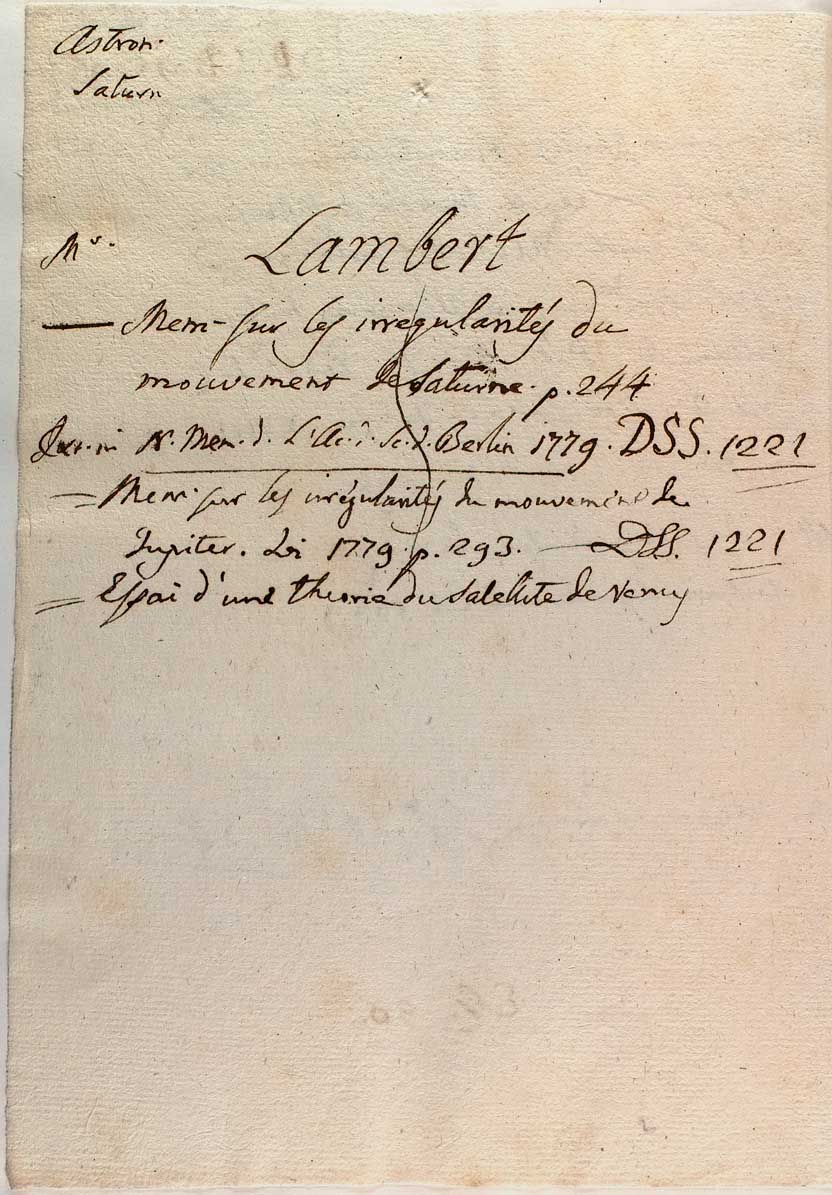 Astron.
Saturn
Mr. Lambert
— Mem. sur les irregularités du
mouvement de Saturne. p. 244
in N. Mem. d. L'Ac. d. Sc. d. Berlin 1779. DSS. 1221
= Mem. sur les irrégularités du mouvement de
Jupiter. Ivi 1779. p. 293. — DSS. 1221
= Essai d'une theorie du Satellite de Venus